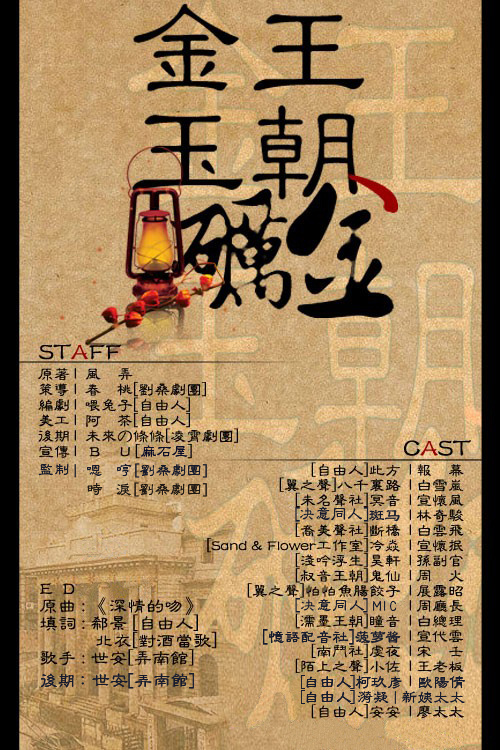 金玉王朝
礪金
STAFF
原著 | 風 弄
策導 | 春 桃[劉桑劇團]
編劇 | 喂兔子[自由人]
美工 | 阿 茶[自由人]
後期 | 未來の條條[凌霄劇團]
宣傳 | B U[麻石屋]
監制 | 嗯 哼[劉桑劇團]
時 淚[劉桑劇團]
CAST
[自由人]此方 | 報 幕
[翼之聲]八千裏路 | 白雪嵐
[未名聲社]冥音 | 宣懷風
[决意同人]斑马 | 林奇駿
[喬美聲社]斷橋 | 白雲飛
[Sand & Flower工作室]冷焱 | 宣懷抿
[淺吟浮生]吴軒 | 孫副官
[叔音王朝]鬼仙 | 周 火
[翼之聲]帕帕魚腸餃子 | 展露昭
[决意同人]MIC | 周廳長
[濡墨王朝]瞳音 | 白總理
[憶語配音社]菠萝酱 | 宣代雲
[南鬥社]虞夜 | 宋 壬
[陌上之聲]小佐 | 王老板
[自由人]柯玖彦 | 歐陽倩
[自由人]漪凝 | 新姨太太
[自由人]安安 | 廖太太
E D
原曲：《深情的吻》
填詞：郗景 [自由人]
北衣[對酒當歌]
歌手：世安[弄南館]
後期：世安[弄南館]